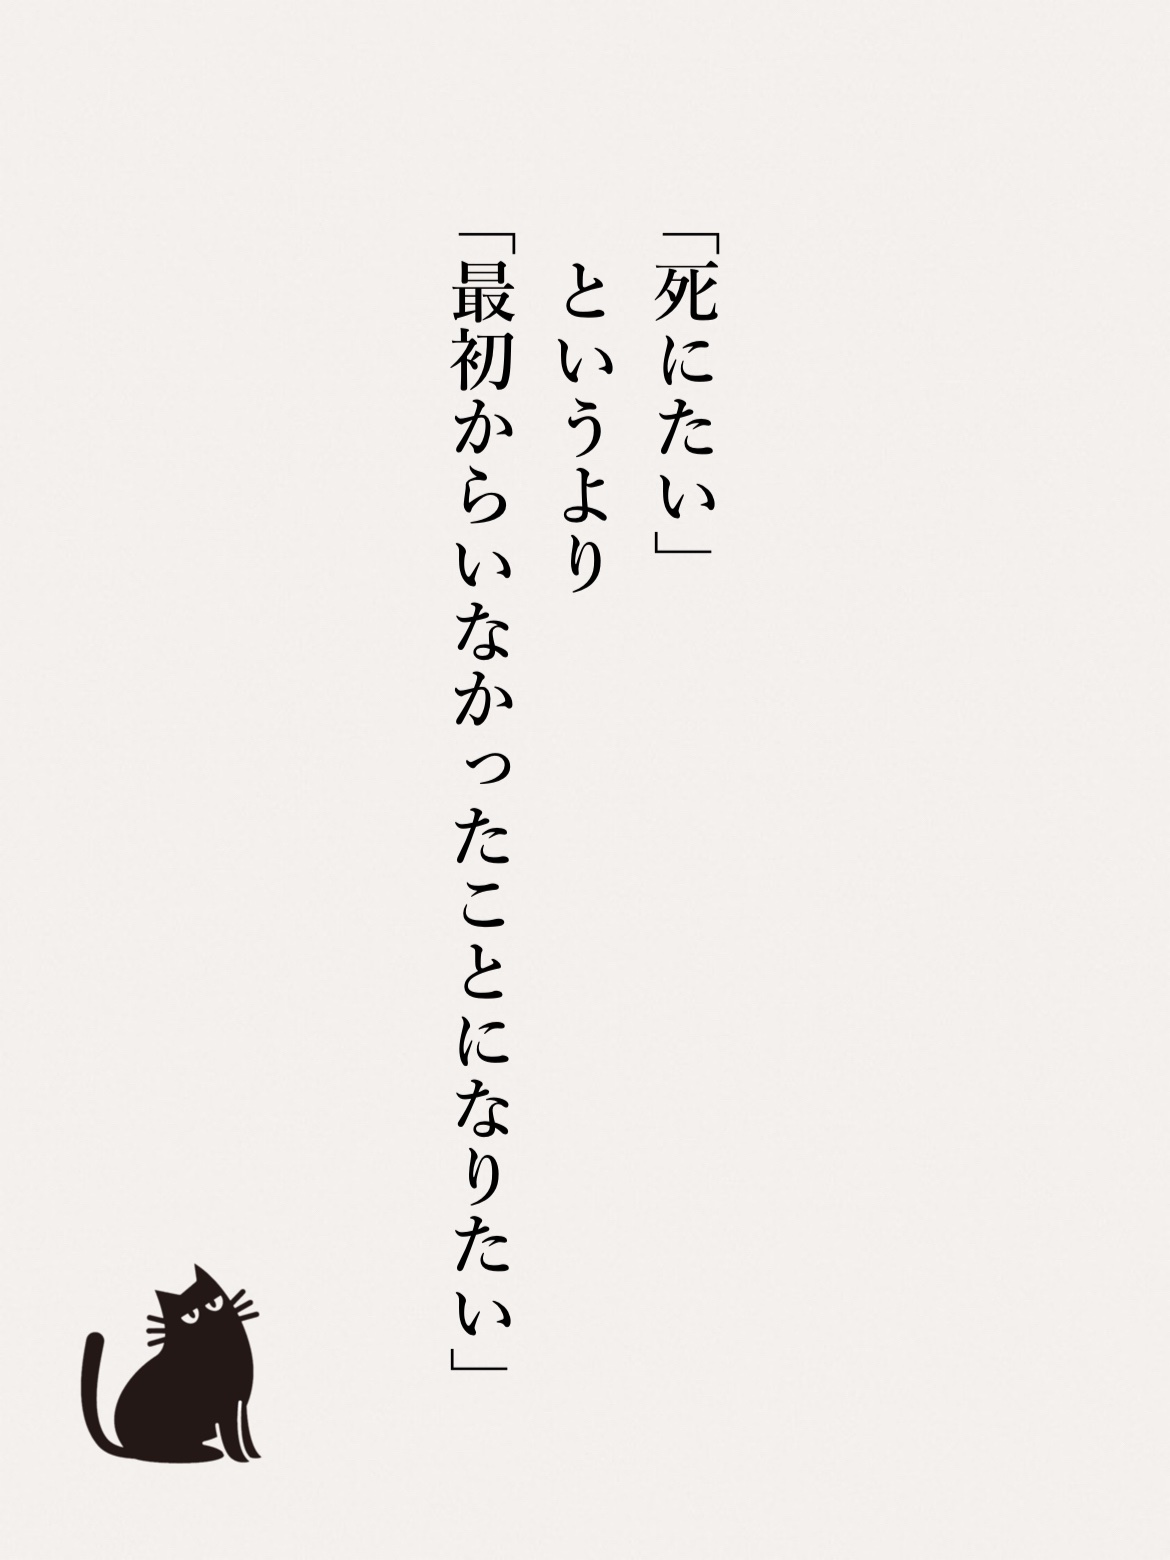 「死にたい」
というより
「最初からいなかったことになりたい」